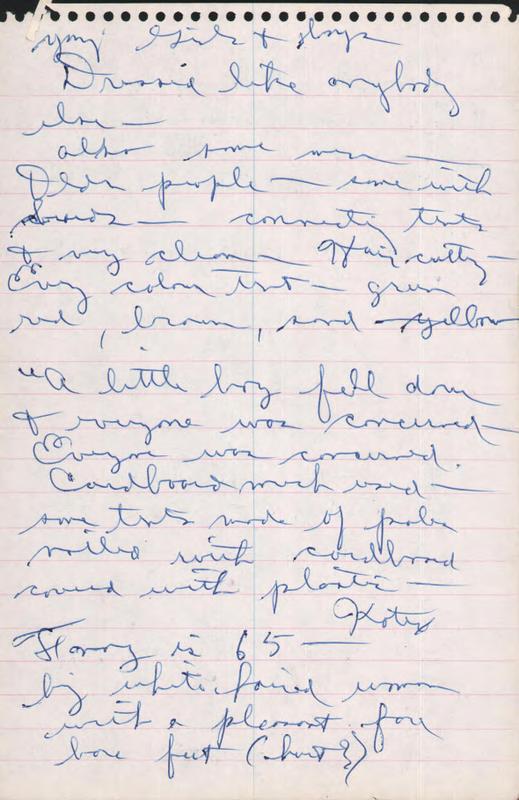 young Girls + boys
Dressed like anybody
else —
also some men —
Older people — some with
beards — connecting tents
+ very clean — Hair cutting —
Every colour tent — green
red, brown, sand — yellow
"A little boy fell down
+ everyone was concerned —
Everyone was concerned.
Cardboard much used —
some tents made of poles
nailed with cardboard
covered with plastic —
Kotex
is 65 —
big white haired woman
with a pleasant face
bare feet (